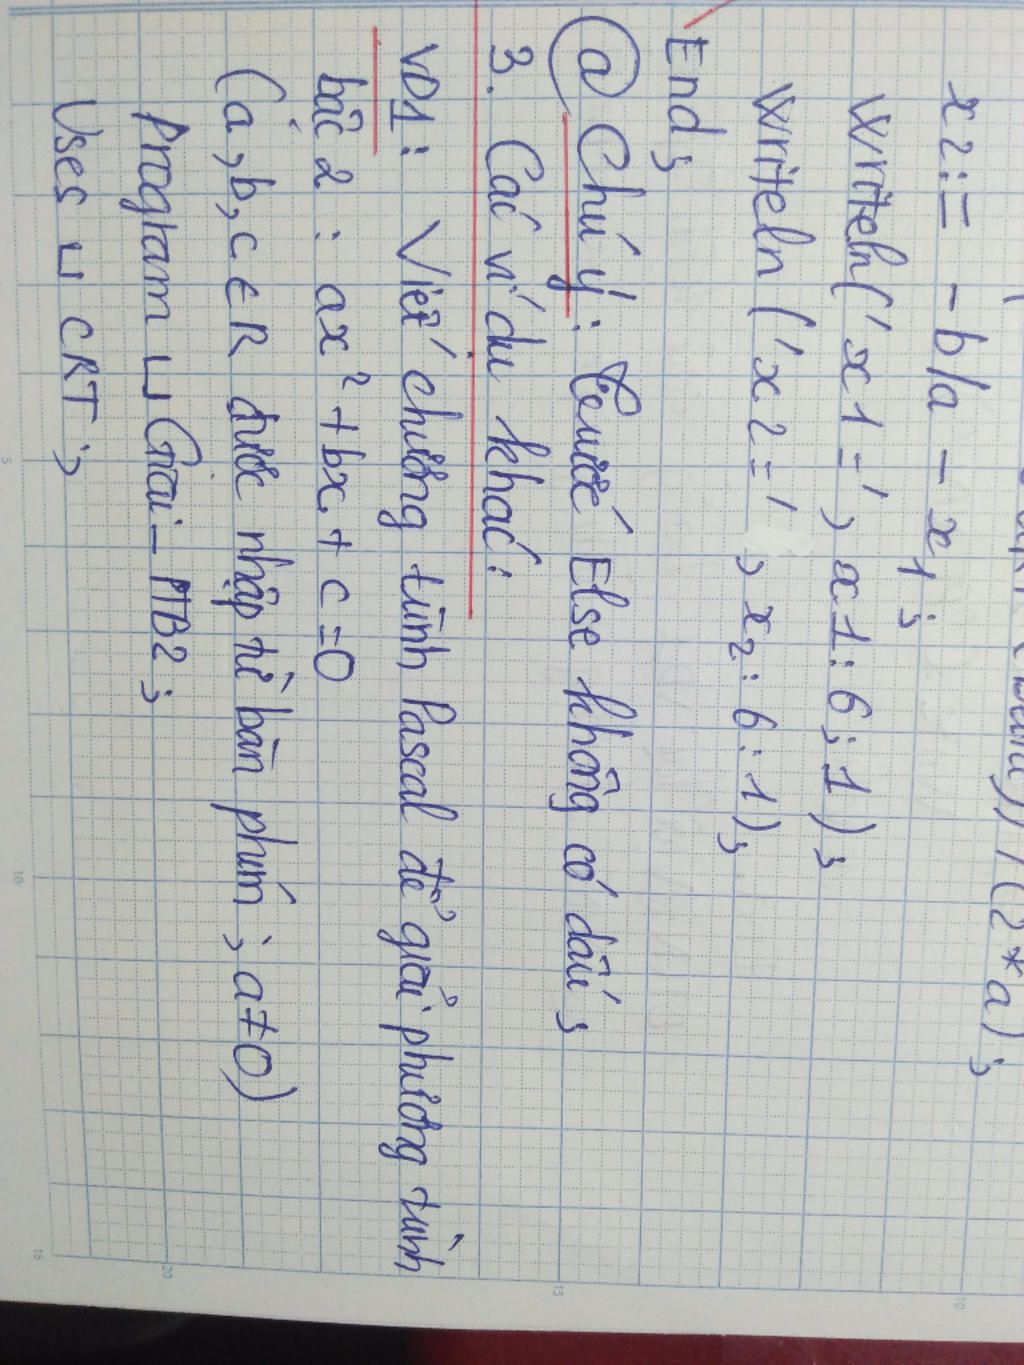 (2*a);
x2:= -b/a - x1;
Writeln('x1=', x1:6:1);
Writeln('x2=', x2:6:1);
End;
@ Chú ý: Trước Else không có dấu;
3. Các ví dụ khác:
VD1: Viết chương trình Pascal để giải phương trình
bậc 2: ax²+bx+c=0
(a,b,c ∈ R được nhập từ bàn phím; a≠0)
Program ⊔ Giai_PTB2;
Uses ⊔ CRT;